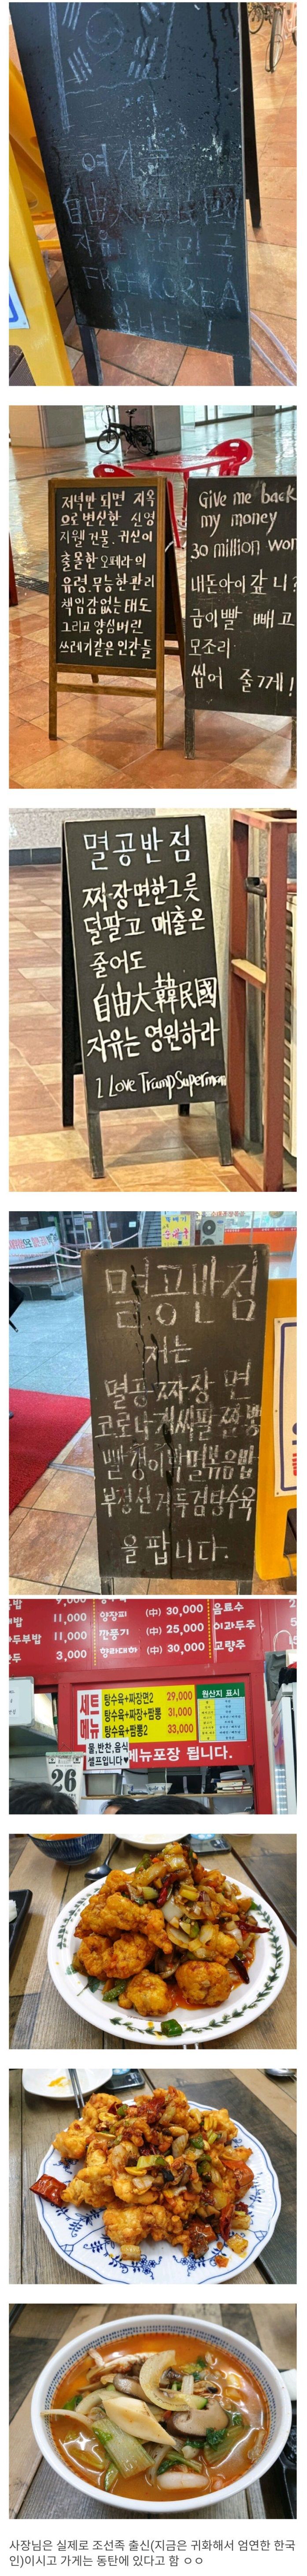 여기는
自由大韓民國
자유대한민국
FREE KOREA
입니다!
저녁만 되면 지옥
으로 변신한 신영
지웰 건물. 귀신이
출몰한 오페라의
유령. 무능한 관리
책임감없는 태도
그리고 양심버린
쓰레기같은 인간들
Give me back
my money
30 million won
내돈아이갚니?
금이빨 빼고
모조리
씹어 줄게!
멸공반점
짜장면한그릇
덜팔고 매출은
줄어도
自由大韓民國
자유는 영원하라
I Love Trump Superman
멸공반점
는
멸공짜장면
코로나개씨팔짬뽕
빨갱이박멸볶음밥
부정선거특검탕수육
을 팝니다.
밥 9,000
밥 11,000 양장피 (中) 30,000 음료수
두부밥 11,000 깐풍기 (中) 25,000 이과두주
두 3,000 향라대하 (中) 30,000 고량주
세트메뉴
탕수육+짜장면2 29,000
탕수육+짜장+짬뽕 31,000
탕수육+짬뽕2 33,000
원산지 표시
물,반찬,음식
셀프입니다♥
메뉴포장 됩니다.
26
사장님은 실제로 조선족 출신(지금은 귀화해서 엄연한 한국
인)이시고 가게는 동탄에 있다고 함 ㅇㅇ